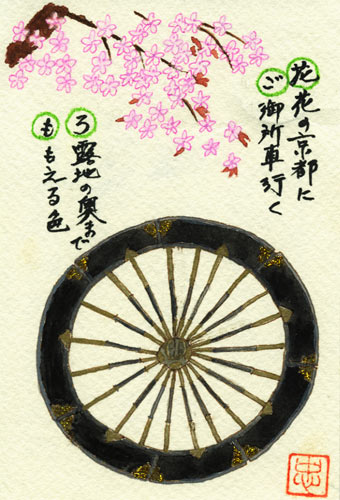 花 花の京都に
ご 御所車行く
ろ 露地の奥まで
も もえる色
忠